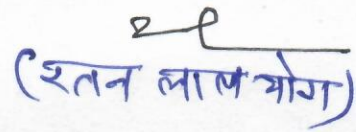 (रतन लाल योग)